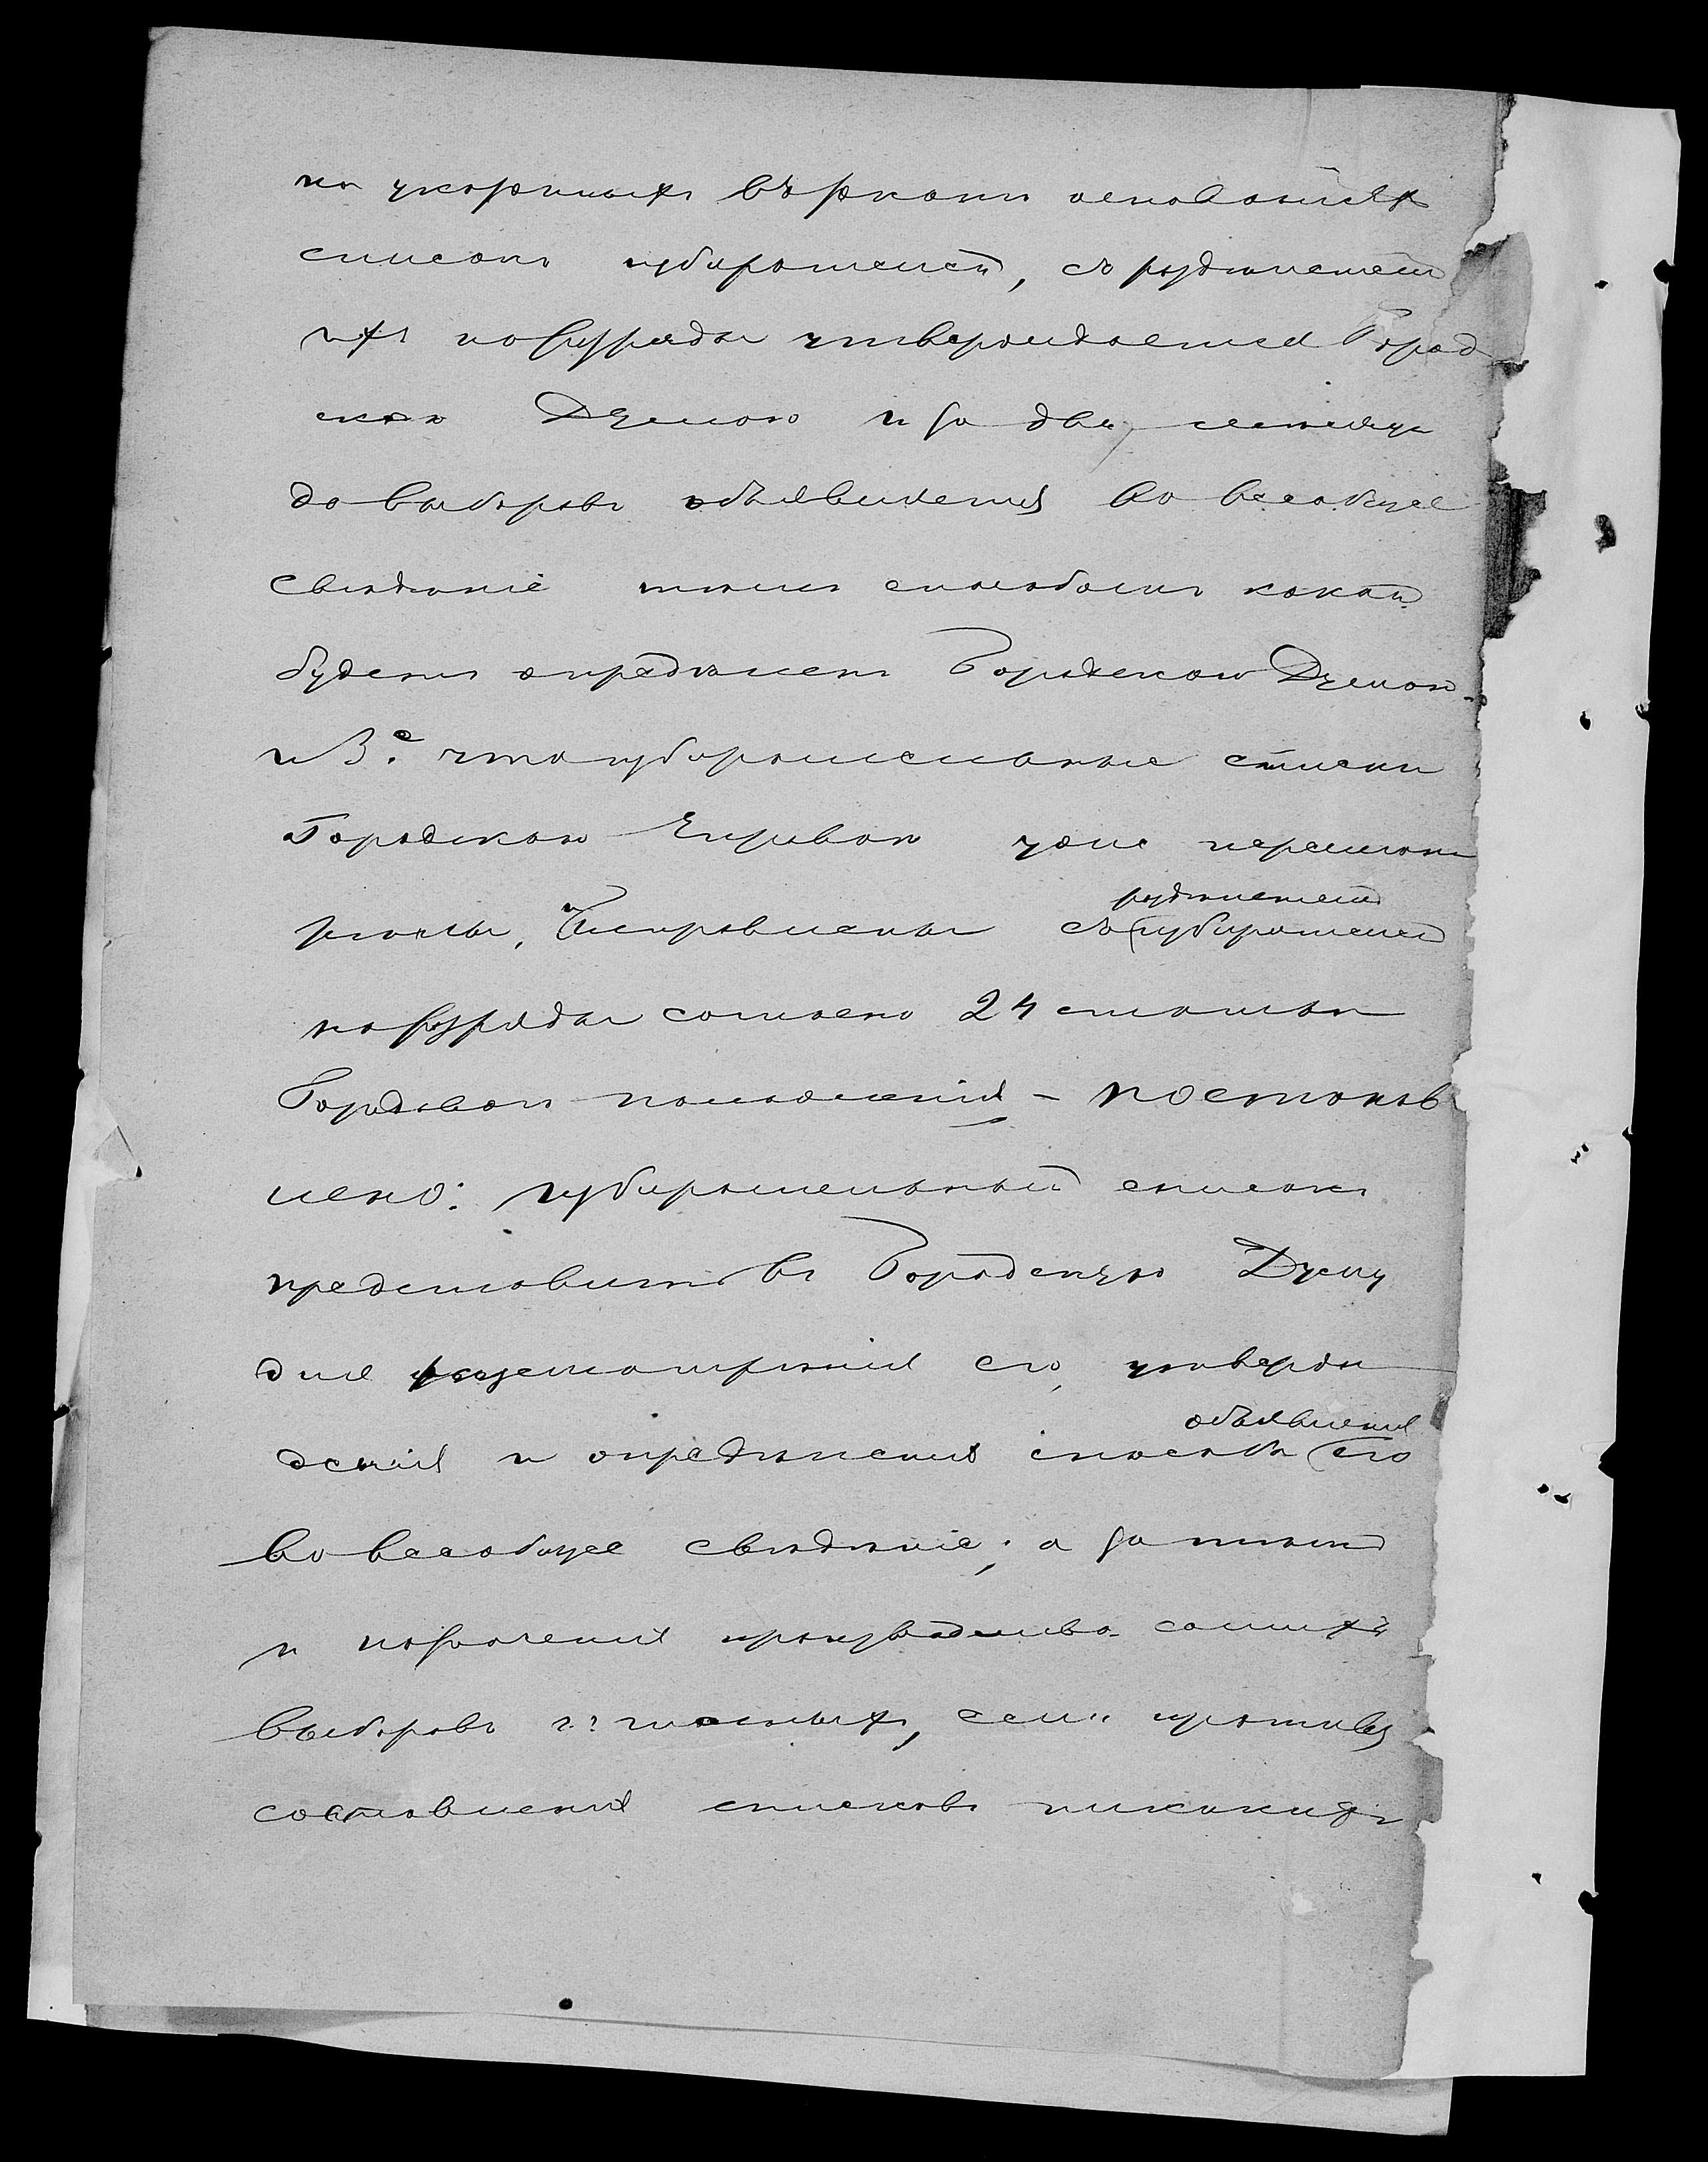 на указанныхъ въ законѣ основанiяхъ
списокъ избирателей, съ раздѣленiемъ
ихъ на разряды утверждается Город
скою Думою и за два мѣсяца
до выборовъ объявляется во всеобщее
свѣдѣнiе тѣмъ способомъ какой
будетъ опредѣленъ Городскою Думою
и 3.е что избирательные списки
Городскою Управою уже пересмот
рѣны, Исправлены съ раздѣленiемъ избирателей
на разряды согласно 24 статьи
Городоваго положенiя – постанов
лено: избирательный списокъ
представить въ Городскую Думу
для разсмотрѣнiя его, утверж
денiя и опредѣленiя способа объявленiя его
во всеобщее свѣдѣнiе; а затѣмъ
и назначенiя производства самихъ
выборовъ г.г. гласныхъ, если противъ
составленiя списковъ никакихъ